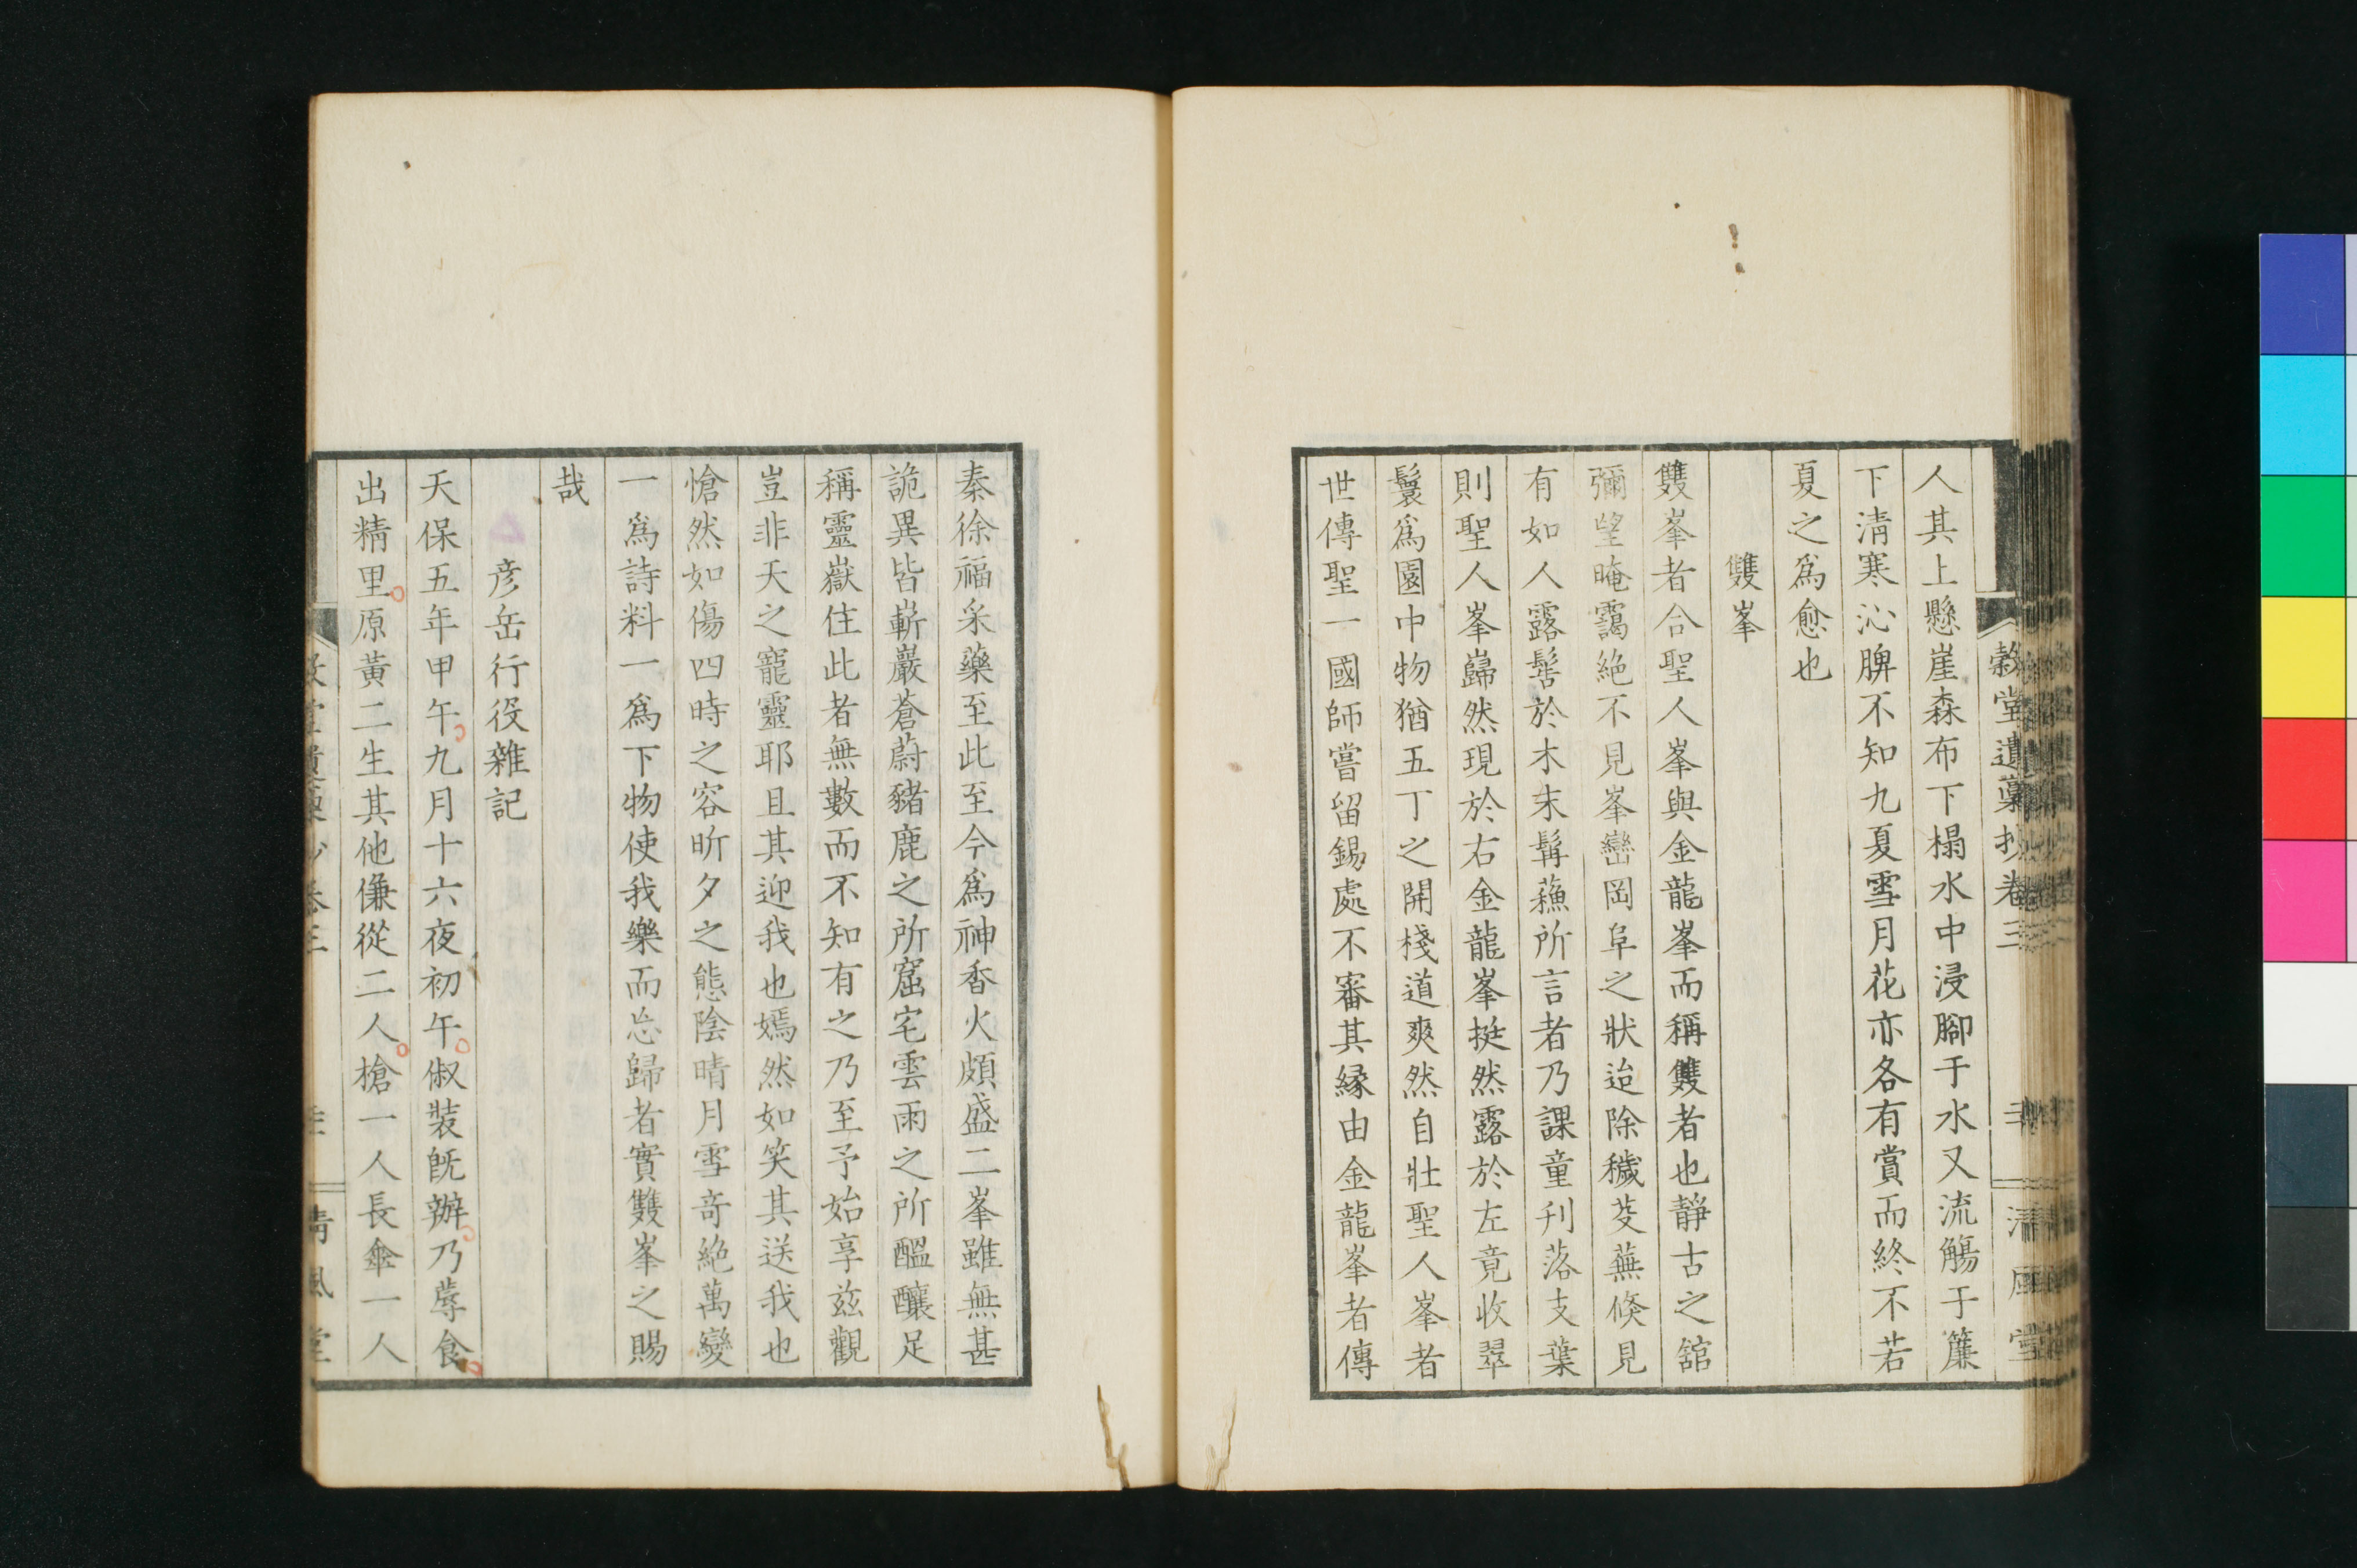 穀堂遺藁抄卷三
清風堂
人其上懸崖森布下榻水中浸腳于水又流觴于簾
下淸寒沁脾不知九夏雪月花亦各有賞而終不若
夏之爲愈也
雙峯
雙峯者合聖人峯與金龍峯而稱雙者也靜古之舘
彌望晻靄絶不見峯巒岡阜之狀迨除穢芟蕪倏見
有如人露髻於木末髯蘓所言者乃課童刋落支葉
則聖人峯巋然現於右金龍峯挺然露於左竟收翠
鬟爲園中物猶五丁之開棧道爽然自壯聖人峯者
世傳聖一國師嘗留錫處不審其緣由金龍峯者傳
秦徐福采藥至此至今爲神香火頗盛二峯雖無甚
詭異皆嶄巖蒼蔚豬鹿之所窟宅雲雨之所醞釀足
稱靈嶽住此者無數而不知有之乃至予始享兹觀
豈非天之寵靈耶且其迎我也嫣然如笑其送我也
愴然如傷四時之容昕夕之態陰晴月雪奇絶萬變
一爲詩料一爲下物使我樂而忘歸者實雙峯之賜
哉
彦岳行役雜記
天保五年甲午九月十六夜初午俶装旣辦乃蓐食
出精里原黃二生其他傔從二人槍一人長傘一人